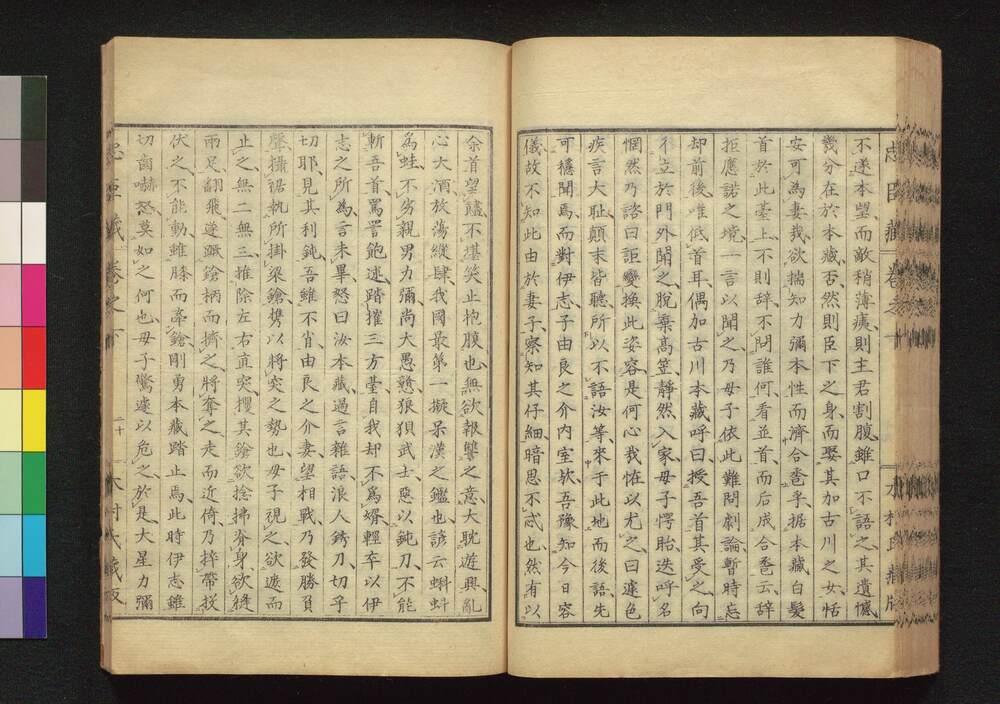 不遂本望而敵稍薄痍則主君割腹雖口不語之其遺憾
幾分在於本藏否然則臣下之身而娶其加古川之女恬
安可為妻哉欲揣知力彌本性而濟合卺乎據本藏白髮
首於此臺上不則辞不問誰何看並首而后成合卺云辞
拒應諾之境一言以聞之乃母子依此難問劇論暫時忘
却前後唯低首耳偶加古川本藏呼曰授吾首其受之向
立於門外聞之脫棄高笠靜然入家母子愕眙迭呼名
惘然乃諮曰詎變換此姿容是何心我恠以尤之曰遽色
疾言大耻顛末皆聽所以不語汝等來于此地而後語先
可穩聞焉而對伊志子由良之介内室欤吾豫知今日容
儀故不知此由於妻子察知其仔細暗思不忒也然有以
余首望不堪笑止抱腹也無欲報讐之意大耽遊興亂
心大酒放蕩縱肆我國最第一擬呆漢之鑑也諺云蝌蚪
為蛙不劣親男力彌尚大愚戇狼狽武士惡以鈍刀不能
斬吾首罵詈飽迄踏摧三方臺自我却不為婿輕卒以伊
志之所為言未畢怒曰汝本藏過言雜語浪人銹刀切乎
切耶見其利鈍吾雖不省由良之介妻望相戰乃發勝負
聲攝裾執所掛梁鎗携以將突之勢也母子視之欲遮而
止之無二無三推除左右直突攫其鎗欲捻拂脊身欲
兩足翻飛遂蹶鎗柄而擠之將奪之走而近倚乃捽帶
伏之不能動雖膝而牽鎗剛勇本藏踏止焉此時伊志雖
切齒嚇怒莫如之何也母子驚遽以危之於是大星力彌
忠臣藏 卷之下 二十